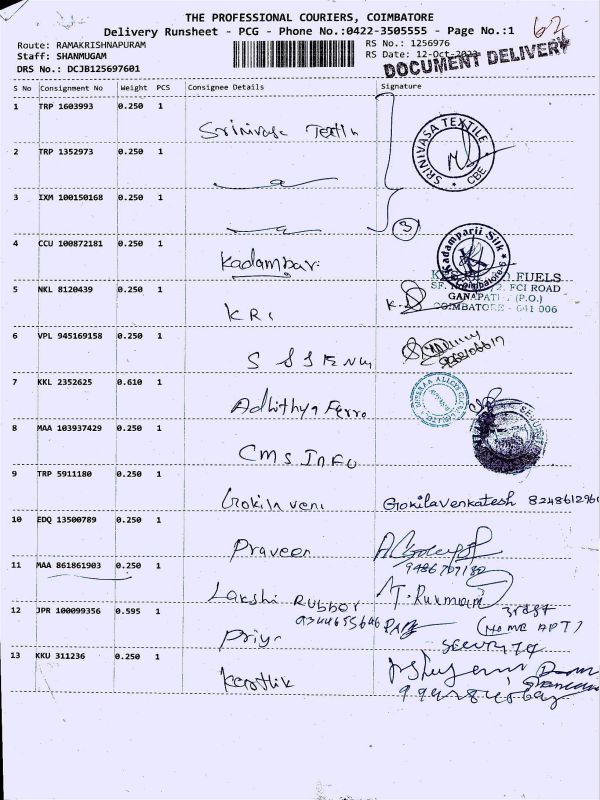 THE PROFESSIONAL COURIERS, COIMBATORE
Delivery Runsheet - PCG - Phone No.:0422-3505555 - Page No.:1
62
Route: RAMAKRISHNAPURAM
RS No.: 1256976
Staff: SHANMUGAM
RS Date: 12-Oct-2023
DOCUMENT DELIVERY
DRS No.: DCJB125697601
S No Consignment No Weight PCS Consignee Details Signature
1 TRP 1603993 0.250 1
Srinivasa Textile
SRINIVASA TEXTILE
CBE
2 TRP 1352973 0.250 1
3 IXM 100150168 0.250 1
3
4 CCU 100872181 0.250 1
Kadambari
Kadamparii Silk
Coimbatore-6
FUELS
FCI ROAD
GANAPATI (P.O.)
COIMBATORE - 641 006
5 NKL 8120439 0.250 1
KRi
6 VPL 945169158 0.250 1
7 KKL 2352625 0.610 1
Adhithya Ferro
8 MAA 103937429 0.250 1
CMS INFO
9 TRP 5911180 0.250 1
Gokilaveni
GokilaVenkatesh
10 EDQ 13500789 0.250 1
Praveen
11 MAA 861861903 0.250 1
Lakshi Rubber
T. Rukmani
12 JPR 100099356 0.595 1
9344655646
Priya
(HOME APT)
Security
13 KKU 311236 0.250 1
Karthik